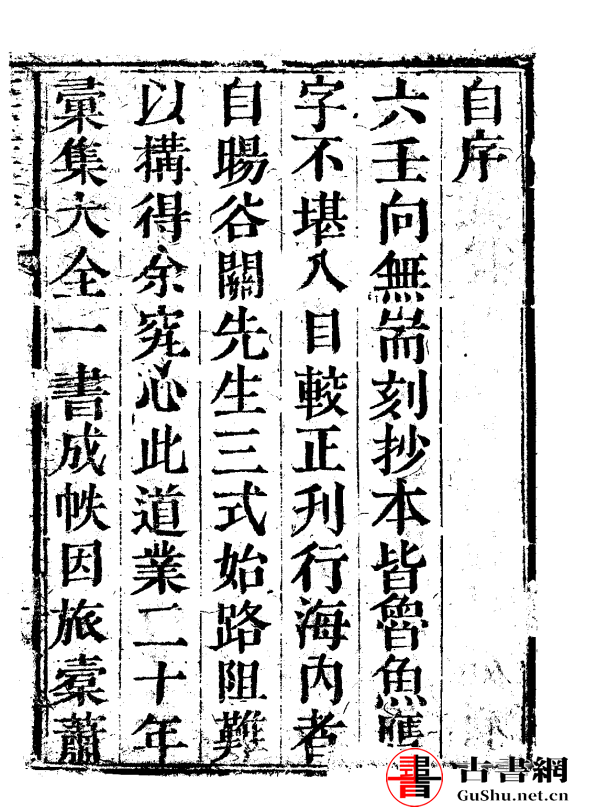 自序
六壬向無耑刻抄本皆魯魚贋
字不堪入目較正刊行海内者
自暘谷關先生三式始路阻難
以搆得余究心此道業二十年
彙集大全一書成帙因旅橐蕭
書
古書網
GuShu.net.cn